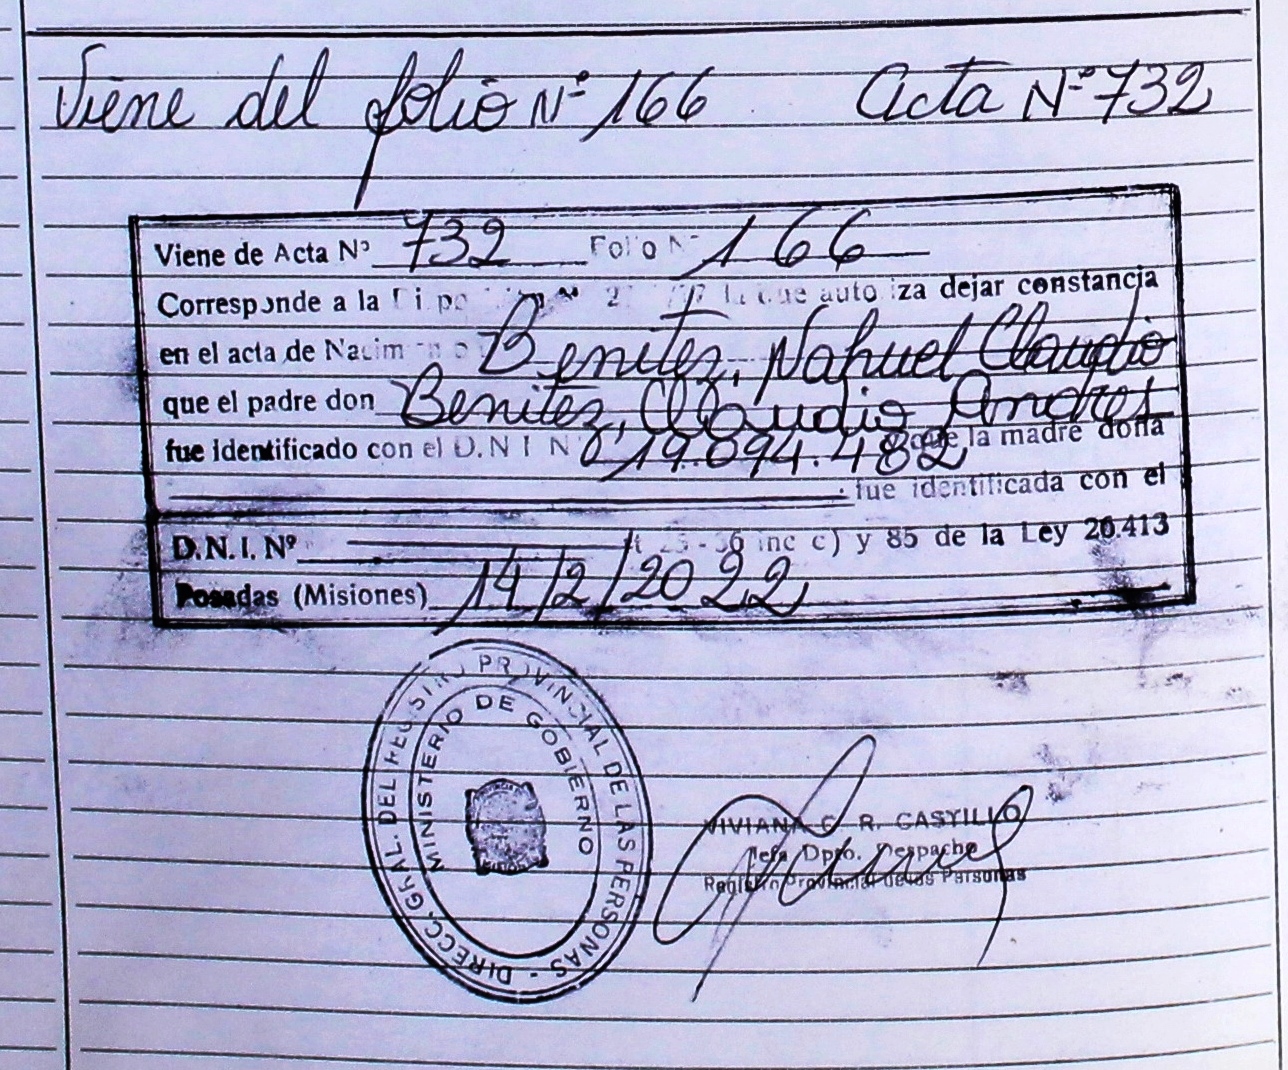 Viene del folio Nº 166 Acta Nº 732
Viene de Acta Nº 732 Folio Nº 166
Corresponde a la que autoriza dejar constancia
en el acta de Nacimiento Benitez, Nahuel Claudio
que el padre don Benitez, Claudio Andres
fue identificado con el D.N.I Nº 19.094.482 que la madre doña
fue identificada con el
D.N.I. Nº inc c) y 85 de la Ley 26.413
Posadas (Misiones) 14/2/2022
DIRECC. GRAL. DEL REGISTRO PROVINCIAL DE LAS PERSONAS -
MINISTERIO DE GOBIERNO
VIVIANA C. R. CASTILLO
Jefa Dpto. Despacho
Registro Provincial de las Personas